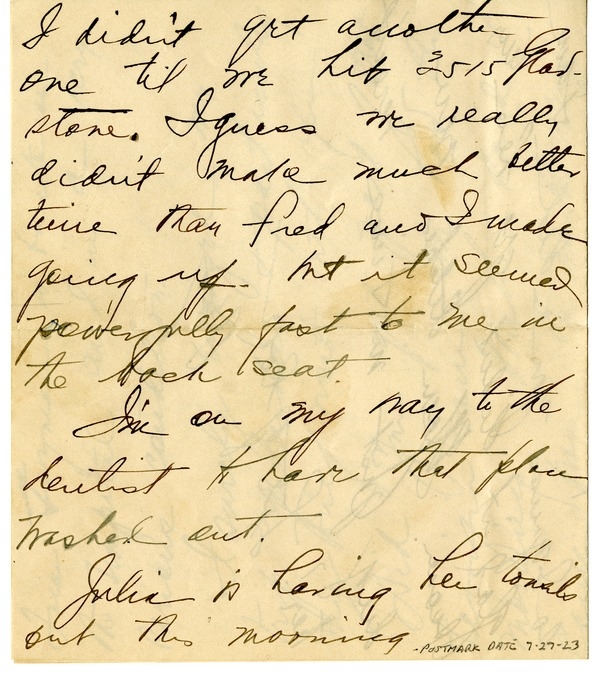 I didn't get another
one til we hit 2515 Glad-
stone. I guess we really
didn't make much better
time than Fred and I made
going up. But it seemed
powerfully fast to me in
the back seat.
I'm on my way to the
dentist to have that place
washed out.
Julia is having her tonsils
out this morning
-POSTMARK DATE 7-27-23